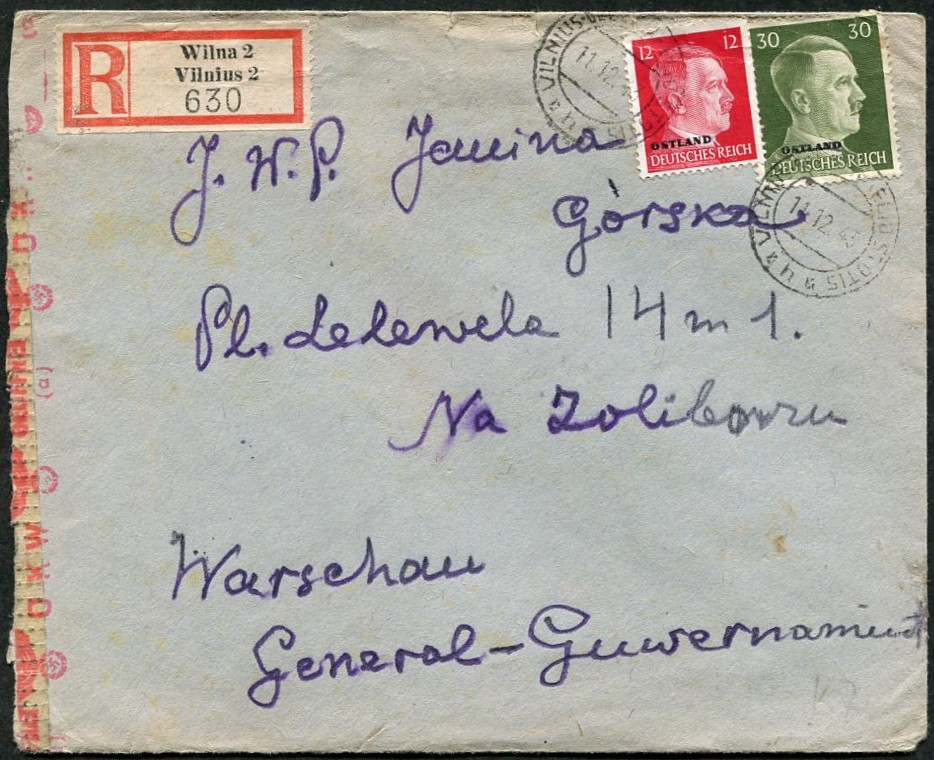 R
Wilna 2
Vilnius 2
630
12 12
OSTLAND
DEUTSCHES REICH
30 30
OSTLAND
DEUTSCHES REICH
11.12.43
11.12.43
J. W. P. Janina
Górska
Pl. Lelewela 14 m 1.
Na Żoliborzu
Warschau
General-Guwernament
(a)